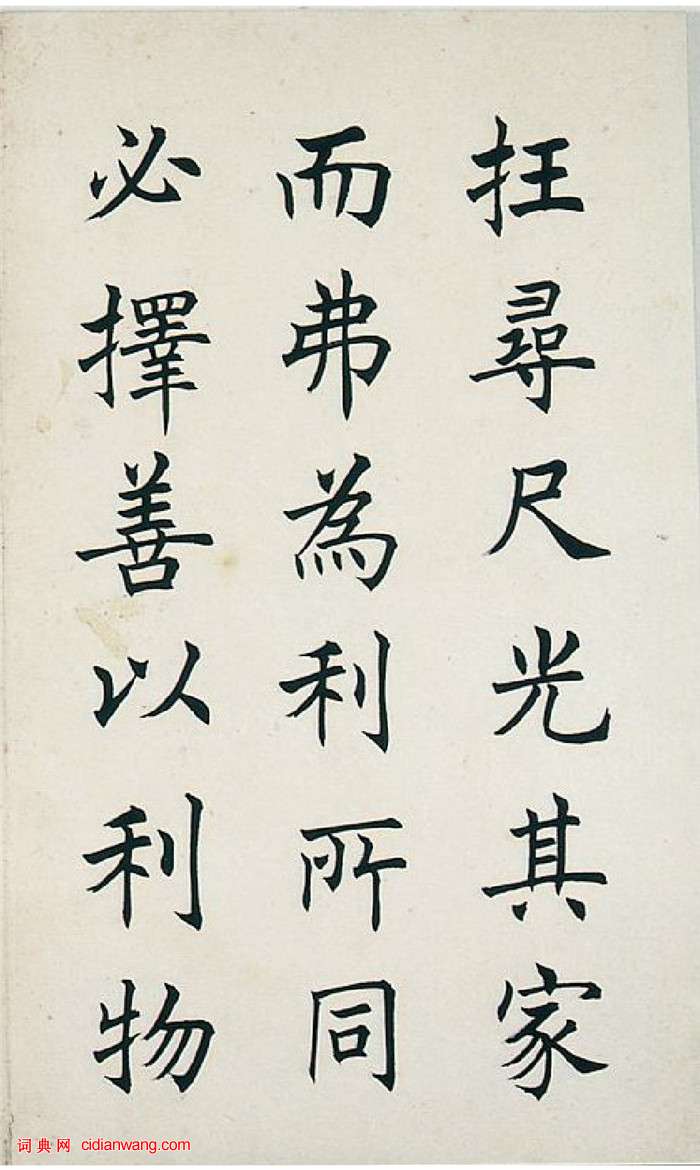 抂尋尺光其家
而弗為利所同
必擇善以利物
词典网 cidianwang.com